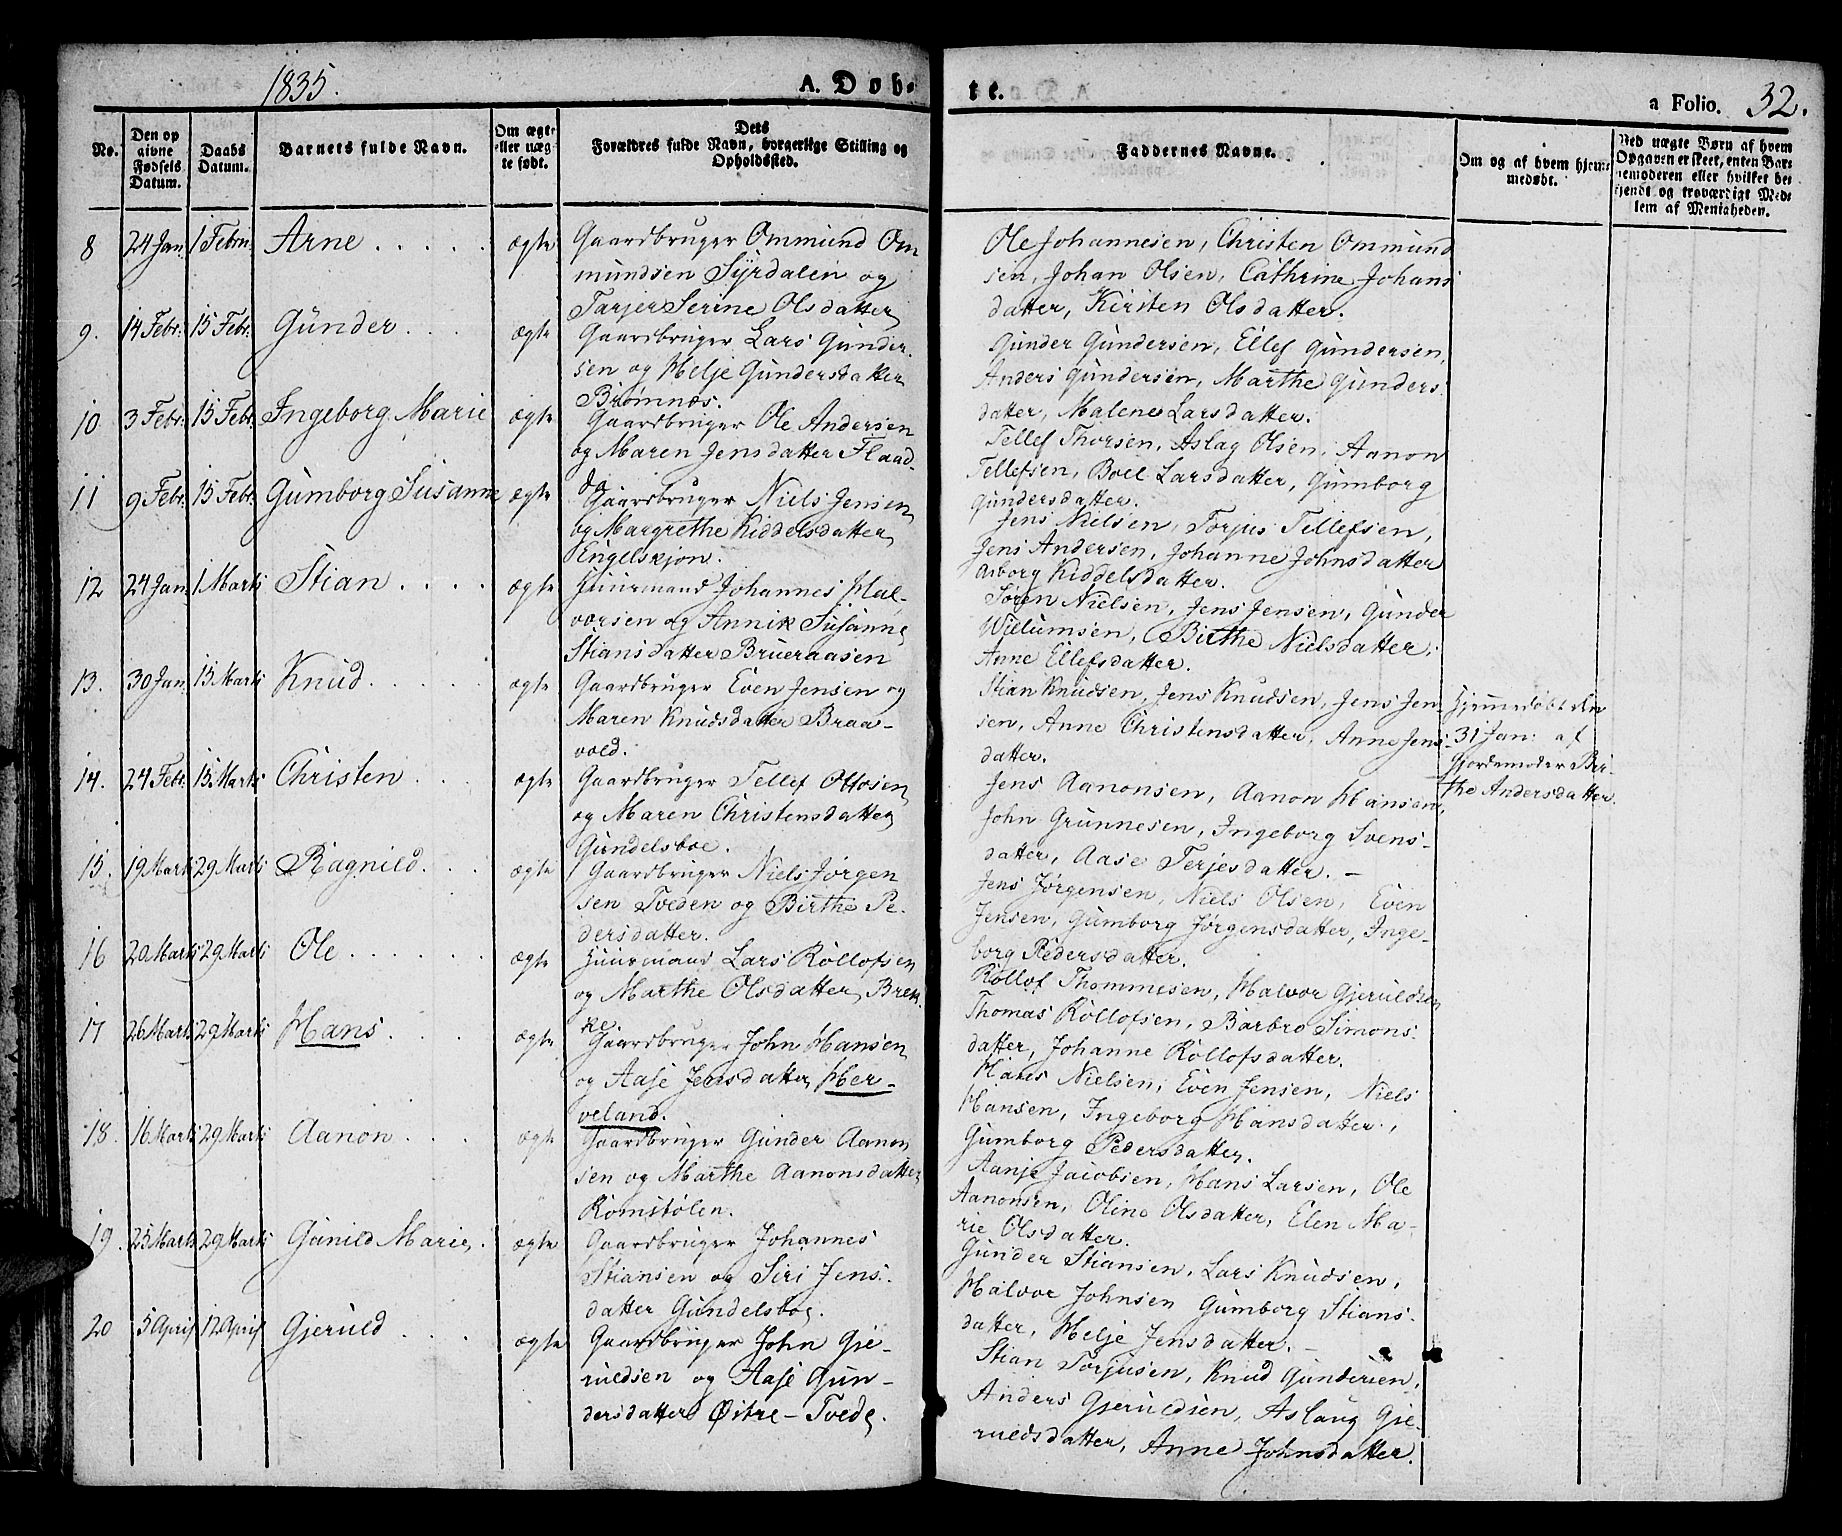 1835.
A. Døb-
te.
a Folio. 32.
No.
Den op
givne
Fødsels
Datum.
Daabs
Datum.
Barnets fulde Navn.
Om ægte
eller uæg-
te født.
Dets
Forældres fulde Navn, borgerlige Stilling og
Opholdssted.
Faddernes Navne.
Om og af hvem hjem-
medøbt.
Ved uægte Børn af hvem
Opgaven er skeet, enten Bar-
nemoderen eller hvilket be-
kjendt og troværdigt Med-
lem af Menigheden.
8 24 Jan: 1 Febru Arne . . . . . ægte Gaardbruger Ommund Om
mundsen Syrdalen og
Tarjer Serine Olsdatter
Ole Johannesen, Christen Ommund
sen, Johan Olsen, Cathrine Johans
datter, Kirsten Olsdatter.
9. 14 Febr: 15 Febr. Günder . . . ægte Gaardbruger Lars Günder-
sen og Helje Gündersdatter
Bromnæs.
Günder Gündersen, Ellef Gündersen,
Anders Gündersen, Marthe Günders
datter, Malene Larsdatter.
10 3 Febr: 15 Febr. Ingeborg Marie ægte Gaardbruger Ole Andersen
og Maren Jensdatter Flaad-
de
Tellef Thorsen, Aslag Olsen, Aanon
Tellefsen, Boel Larsdatter, Gumborg
Gündersdatter.
11 9 Febr. 15 Febr. Gumborg Susanne ægte Gaardbruger Niels Jensen
og Margrethe Kiddelsdatter
Engelskjon.
Jens Nielsen, Torjus Tellefsen,
Jens Andersen, Johanne Johnsdatter
Asborg Kiddelsdatter.
12 24 Jan 1 Marti Stian . . . . ægte Huusmand Johannes Hal-
vorsen og Annik Susanne
Stiansdatter Brueraasen
Søren Nielsen, Jens Jensen, Günder
Willumsen, Birthe Nielsdatter,
Anne Ellefsdatter.
13. 30 Jan 15 Marti Knud . . . . . ægte Gaardbruger Even Jensen og
Maren Knudsdatter Braa-
vold.
Stian Knudsen, Jens Knudsen, Jens Jen-
sen, Anne Christensdatter, Anne Jens-
datter.
Hjemmedøbt den
31 Jan: af
Jordemoder Bir-
the Andersdatter.
14. 24 Febr. 15 Marti Christen . . . ægte Gaardbruger Tellef Ottosen
og Maren Christensdatter
Gundelsboe.
Jens Aanonsen, Aanon Hansen,
John Grunnesen, Ingeborg Svens-
datter, Aase Terjesdatter. -
15. 19 Marti 29 Marti Ragnild. . . ægte Gaardbruger Niels Jørgen
sen Tveden og Birthe Pe-
dersdatter.
Jens Jørgensen, Niels Olsen, Even
Jensen, Gumborg Jørgensdatter, Inge-
borg Pedersdatter.
16 20 Marti 29 Marti Ole . . . . . . ægte Huusmand Lars Rollofsen
og Marthe Olsdatter Brek-
ke.
Rollof Thommesen, Halvor Gjeruldsen
Thomas Rollofsen, Barbro Simons-
datter, Johanne Rollofsdatter.
17 26 Marti 29 Marti Hans . . . ægte Gaardbruger John Hansen
og Aase Jensdatter Her-
veland.
Hans Nielsen, Even Jensen, Niels
Hansen, Ingeborg Hansdatter,
Gumborg Pedersdatter.
18. 16 Marti 29 Marti Aanon . . . ægte Gaardbruger Günder Aanon
sen og Marthe Aanonsdatter
Romstølen.
Aanje Jacobsen, Hans Larsen, Ole
Aanonsen, Oline Olsdatter, Elen Ma-
rie Olsdatter.
19. 25 Marti 29 Marti Gunild Marie . ægte Gaardbruger Johannes
Stiansen og Siri Jens-
datter Gundelsboe.
Günder Stiansen, Lars Knudsen,
Halvor Johnsen Gumborg Stians-
datter, Helje Jensdatter. -
20 5 April 12 April Gjeruld . . . ægte Gaardbruger John Gje-
ruldsen og Aase Gun-
dersdatter Østre-Tvede.
Stian Torjusen, Knud Gundersen,
Anders Gjeruldsen, Aslaug Gje-
ruldsdatter, Anne Johnsdatter.